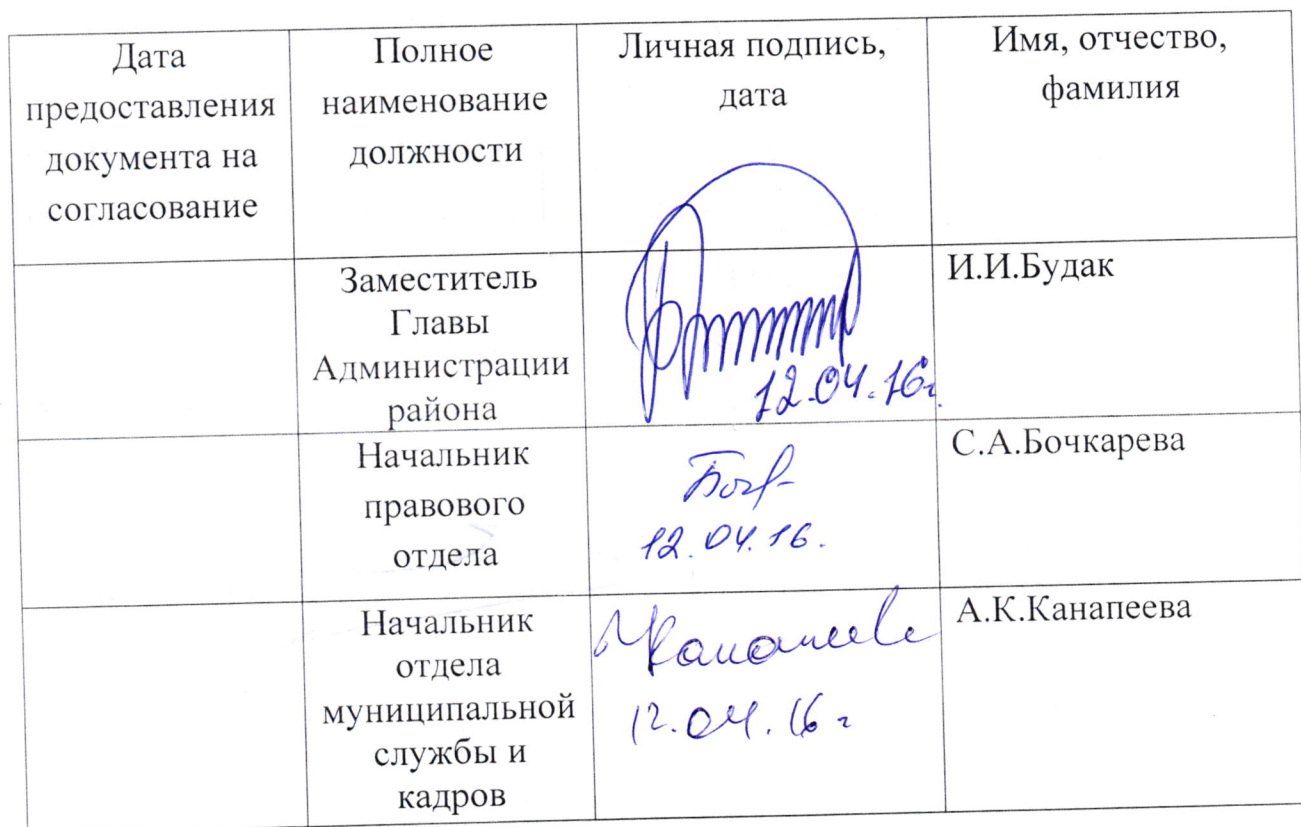 Дата
предоставления
документа на
согласование
Полное
наименование
должности
Личная подпись,
дата
Имя, отчество,
фамилия
Заместитель
Главы
Администрации
района
12.04.16г.
И.И.Будак
Начальник
правового
отдела
12.04.16.
С.А.Бочкарева
Начальник
отдела
муниципальной
службы и
кадров
12.04.16г
А.К.Канапеева